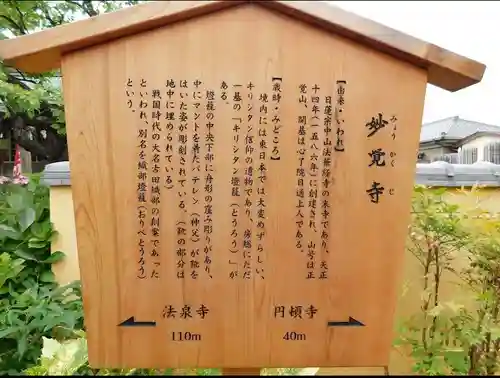 妙覚寺
みょうかくじ
【由来・いわれ】
日蓮宗中山法華経寺の末寺であり、天正
十四年(一五八六年)に創建され、山号は正
覚山、開基は心了院日通上人である。
【歳時・みどころ】
境内には東日本では大変めずらしい、
キリシタン信仰の遺物であり、房総にただ
一基の「キリシタン燈籠(とうろう)」が
ある。
燈籠の中央下部に舟形の窪み彫りがあり、
中にマントを着たバテレン(神父)が靴を
はいた姿が彫刻されている。(靴の部分は
地中に埋められている)
戦国時代の大名古田織部の創案であった
といわれ、別名を織部燈籠(おりべとうろう)
という。
法泉寺
110m
円頓寺
40m